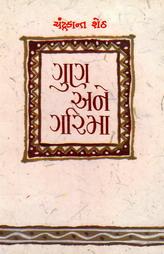 ચંદ્રકાન્ત શેઠ
ગુણ
અને
ગરિમા